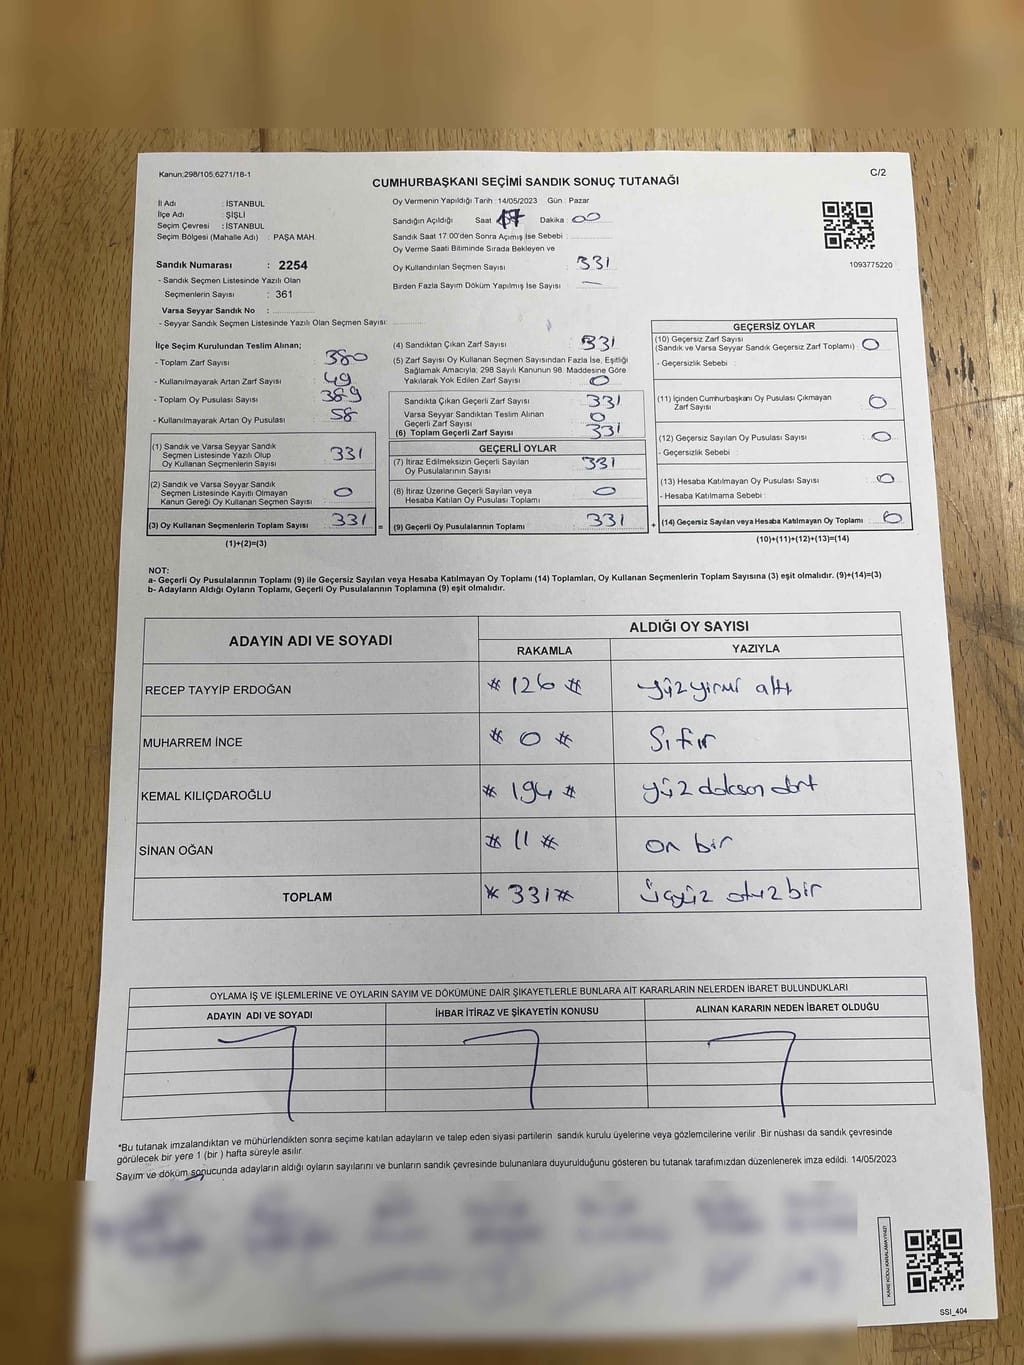 Kanun;298/105;6271/18-1
C/2
CUMHURBAŞKANI SEÇİMİ SANDIK SONUÇ TUTANAĞI
İl Adı : İSTANBUL
İlçe Adı : ŞİŞLİ
Seçim Çevresi : İSTANBUL
Seçim Bölgesi (Mahalle Adı) : PAŞA MAH.
Sandık Numarası : 2254
- Sandık Seçmen Listesinde Yazılı Olan
Seçmenlerin Sayısı : 361
Varsa Seyyar Sandık No :
- Seyyar Sandık Seçmen Listesinde Yazılı Olan Seçmen Sayısı:
Oy Vermenin Yapıldığı Tarih : 14/05/2023 Gün : Pazar
Sandığın Açıldığı Saat : 17 Dakika : 00
Sandık Saat 17:00'den Sonra Açımış İse Sebebi :
Oy Verme Saati Bitiminde Sırada Bekleyen ve
Oy Kullandırılan Seçmen Sayısı : 331
Birden Fazla Sayım Döküm Yapılmış İse Sayısı : —
1093775220
İlçe Seçim Kurulundan Teslim Alınan;
- Toplam Zarf Sayısı : 380
- Kullanılmayarak Artan Zarf Sayısı : 49
- Toplam Oy Pusulası Sayısı : 389
- Kullanılmayarak Artan Oy Pusulası : 58
(1) Sandık ve Varsa Seyyar Sandık
Seçmen Listesinde Yazılı Olup
Oy Kullanan Seçmenlerin Sayısı : 331
(2) Sandık ve Varsa Seyyar Sandık
Seçmen Listesinde Kayıtlı Olmayan
Kanun Gereği Oy Kullanan Seçmen Sayısı : 0
(3) Oy Kullanan Seçmenlerin Toplam Sayısı : 331 =
(1)+(2)=(3)
(4) Sandıktan Çıkan Zarf Sayısı : 331
(5) Zarf Sayısı Oy Kullanan Seçmen Sayısından Fazla İse, Eşitliği
Sağlamak Amacıyla, 298 Sayılı Kanunun 98. Maddesine Göre
Yakılarak Yok Edilen Zarf Sayısı : 0
Sandıkta Çıkan Geçerli Zarf Sayısı : 331
Varsa Seyyar Sandıktan Teslim Alınan
Geçerli Zarf Sayısı : 0
(6) Toplam Geçerli Zarf Sayısı : 331
GEÇERLİ OYLAR
(7) İtiraz Edilmeksizin Geçerli Sayılan
Oy Pusulalarının Sayısı : 331
(8) İtiraz Üzerine Geçerli Sayılan veya
Hesaba Katılan Oy Pusulası Toplamı : 0
(9) Geçerli Oy Pusulalarının Toplamı : 331 +
GEÇERSİZ OYLAR
(10) Geçersiz Zarf Sayısı
(Sandık ve Varsa Seyyar Sandık Geçersiz Zarf Toplamı) : 0
- Geçersizlik Sebebi :
(11) İçinden Cumhurbaşkanı Oy Pusulası Çıkmayan
Zarf Sayısı : 0
(12) Geçersiz Sayılan Oy Pusulası Sayısı : 0
- Geçersizlik Sebebi :
(13) Hesaba Katılmayan Oy Pusulası Sayısı : 0
- Hesaba Katılmama Sebebi :
(14) Geçersiz Sayılan veya Hesaba Katılmayan Oy Toplamı : 0
(10)+(11)+(12)+(13)=(14)
NOT:
a- Geçerli Oy Pusulalarının Toplamı (9) ile Geçersiz Sayılan veya Hesaba Katılmayan Oy Toplamı (14) Toplamları, Oy Kullanan Seçmenlerin Toplam Sayısına (3) eşit olmalıdır. (9)+(14)=(3)
b- Adayların Aldığı Oyların Toplamı, Geçerli Oy Pusulalarının Toplamına (9) eşit olmalıdır.
ADAYIN ADI VE SOYADI ALDIĞI OY SAYISI
RAKAMLA YAZIYLA
RECEP TAYYİP ERDOĞAN # 126 # yüz yirmi altı
MUHARREM İNCE # 0 # Sıfır
KEMAL KILIÇDAROĞLU # 194 # yüz doksan dört
SİNAN OĞAN # 11 # on bir
TOPLAM # 331 # üçyüz otuz bir
OYLAMA İŞ VE İŞLEMLERINE VE OYLARIN SAYIM VE DÖKÜMÜNE DAİR ŞİKAYETLERLE BUNLARA AİT KARARLARIN NELERDEN İBARET BULUNDUKLARI
ADAYIN ADI VE SOYADI İHBAR İTİRAZ VE ŞİKAYETİN KONUSU ALINAN KARARIN NEDEN İBARET OLDUĞU
*Bu tutanak imzalandıktan ve mühürlendikten sonra seçime katılan adayların ve talep eden siyasi partilerin sandık kurulu üyelerine veya gözlemcilerine verilir. Bir nüshası da sandık çevresinde
görülecek bir yere 1 (bir ) hafta süreyle asılır.
Sayım ve döküm sonucunda adayların aldığı oyların sayılarını ve bunların sandık çevresinde bulunanlara duyurulduğunu gösteren bu tutanak tarafımızdan düzenlenerek imza edildi. 14/05/2023
SSİ_404